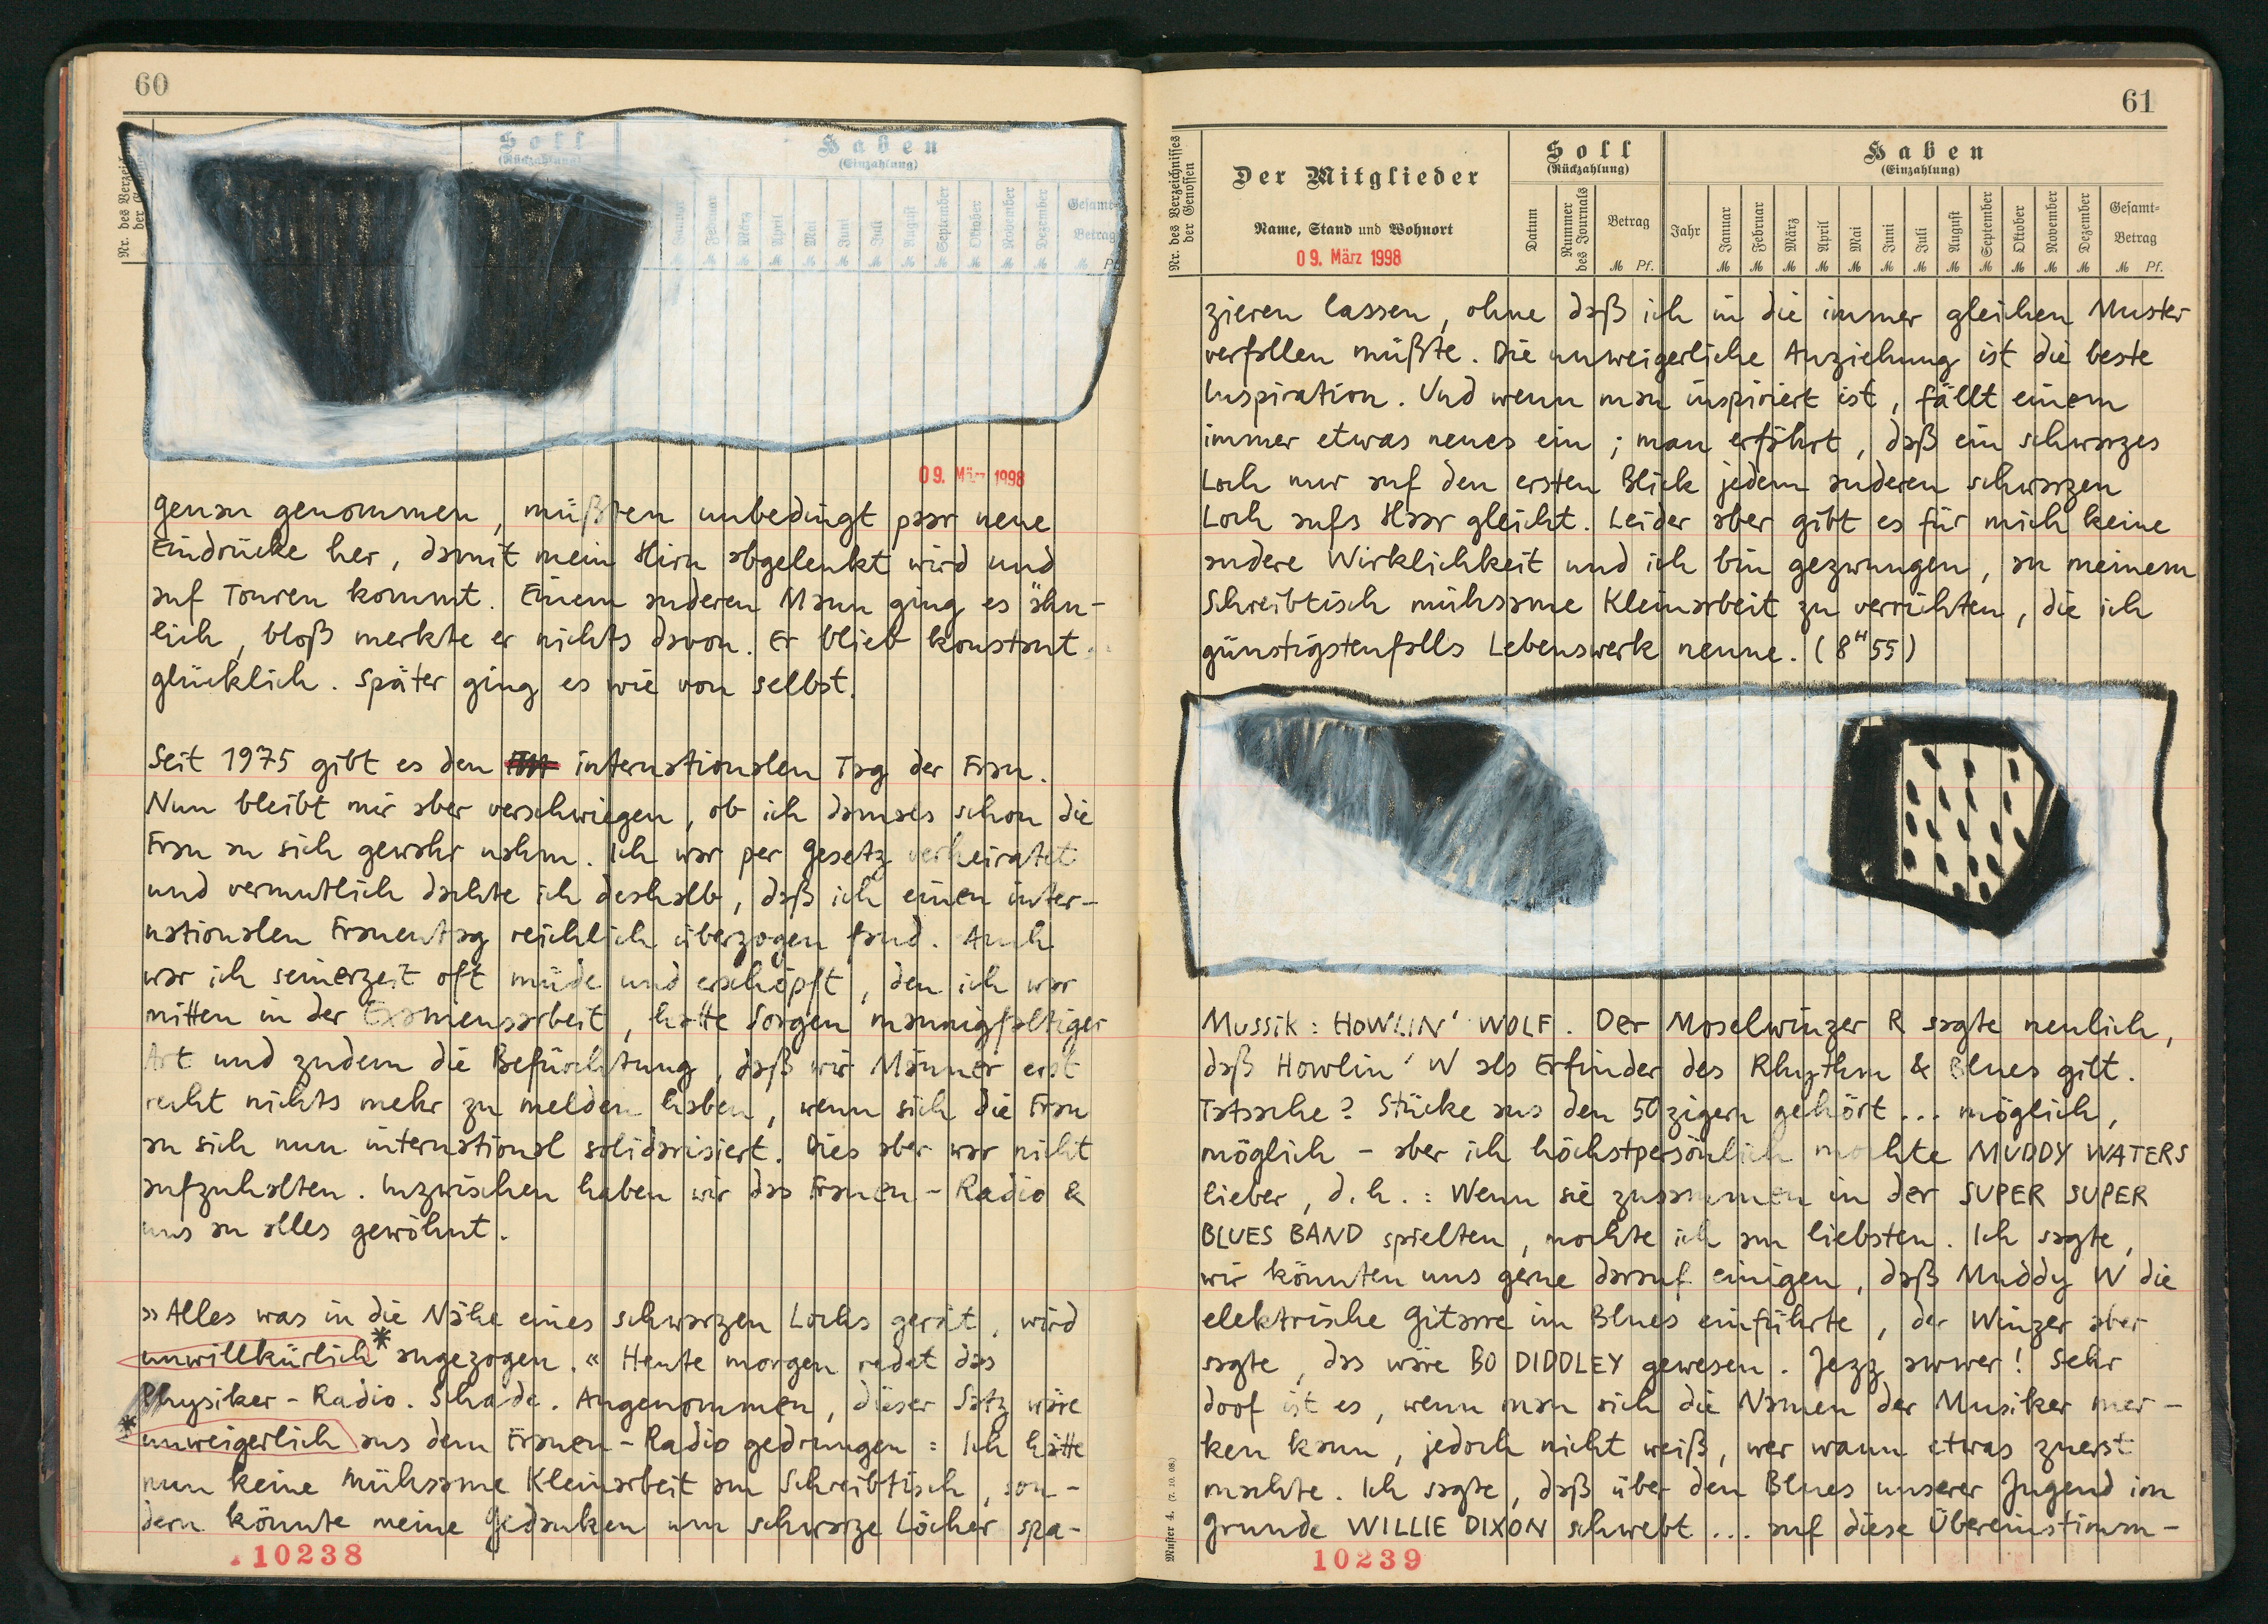 60
Nr. des Verzeich
der Gen
Soll
(Rückzahlung)
Haben
(Einzahlung)
Januar Februar März April Mai Juni Juli August September Oktober November Dezember Gesamt-
Betrag
M M M M M M M M M M M M M Pf.
09. März 1998
genau genommen, müßten unbedingt paar neue
Eindrücke her, damit mein Hirn abgelenkt wird und
auf Touren kommt. Einem anderen Mann ging es ähn-
lich, bloß merkte er nichts davon. Er blieb konstant
glücklich. Später ging es wie von selbst.
Seit 1975 gibt es den internationalen Tag der Frau.
Nun bleibt mir aber verschwiegen, ob ich damals schon die
Frau an sich gewahr nahm. Ich war per Gesetz verheiratet
und vermutlich dachte ich deshalb, daß ich einen inter-
nationalen Frauentag reichlich überzogen fand. Auch
war ich seinerzeit oft müde und erschöpft, den ich war
mitten in der Examensarbeit, hatte Sorgen mannigfaltiger
Art und zudem die Befürchtung, daß wir Männer erst
recht nichts mehr zu melden haben, wenn sich die Frau
an sich nun international solidarisiert. Dies aber war nicht
aufzuhalten. Inzwischen haben wir das Frauen-Radio &
uns an alles gewöhnt.
»Alles was in die Nähe eines schwarzen Lochs gerät, wird
unwillkürlich* angezogen.« Heute morgen redet das
Physiker-Radio. Schade. Angenommen, dieser Satz wäre
*unweigerlich aus dem Frauen-Radio gedrungen: Ich hätte
nun keine mühsame Kleinarbeit am Schreibtisch, son-
dern könnte meine Gedanken um schwarze Löcher spa-
10238
61
Nr. des Verzeichnisses
der Genossen
Der Mitglieder
Name, Stand und Wohnort
09. März 1998
Soll
(Rückzahlung)
Datum
Nummer
des Journals
Betrag
M Pf.
Haben
(Einzahlung)
Jahr Januar Februar März April Mai Juni Juli August September Oktober November Dezember Gesamt-
Betrag
M M M M M M M M M M M M M Pf.
zieren lassen, ohne daß ich in die immer gleichen Muster
verfallen müßte. Die unweigerliche Anziehung ist die beste
Inspiration. Und wenn man inspiriert ist, fällt einem
immer etwas neues ein; man erfährt, daß ein schwarzes
Loch nur auf den ersten Blick jedem anderen schwarzen
Loch aufs Haar gleicht. Leider aber gibt es für mich keine
andere Wirklichkeit und ich bin gezwungen, an meinem
Schreibtisch mühsame Kleinarbeit zu verrichten, die ich
günstigstenfalls Lebenswerk nenne. (8H55)
Mussik: HOWLIN' WOLF. Der Moselwinzer R sagte neulich,
daß Howlin' W als Erfinder des Rhythm & Blues gilt.
Tatsache? Stücke aus den 50zigern gehört ... möglich,
möglich - aber ich höchstpersönlich mochte MUDDY WATERS
lieber, d.h.: Wenn sie zusammen in der SUPER SUPER
BLUES BAND spielten, mochte ich am liebsten. Ich sagte,
wir könnten uns gerne darauf einigen, daß Muddy W die
elektrische Gitarre im Blues einführte, der Winzer aber
sagte, das wäre BO DIDDLEY gewesen. Jezz awwer! Sehr
doof ist es, wenn man sich die Namen der Musiker mer-
ken kann, jedoch nicht weiß, wer wann etwas zuerst
machte. Ich sagte, daß über den Blues unserer Jugend im
Grunde WILLIE DIXON schwebt ... auf diese Übereinstimm-
10239
Muster 4. (7. 10. 08.)